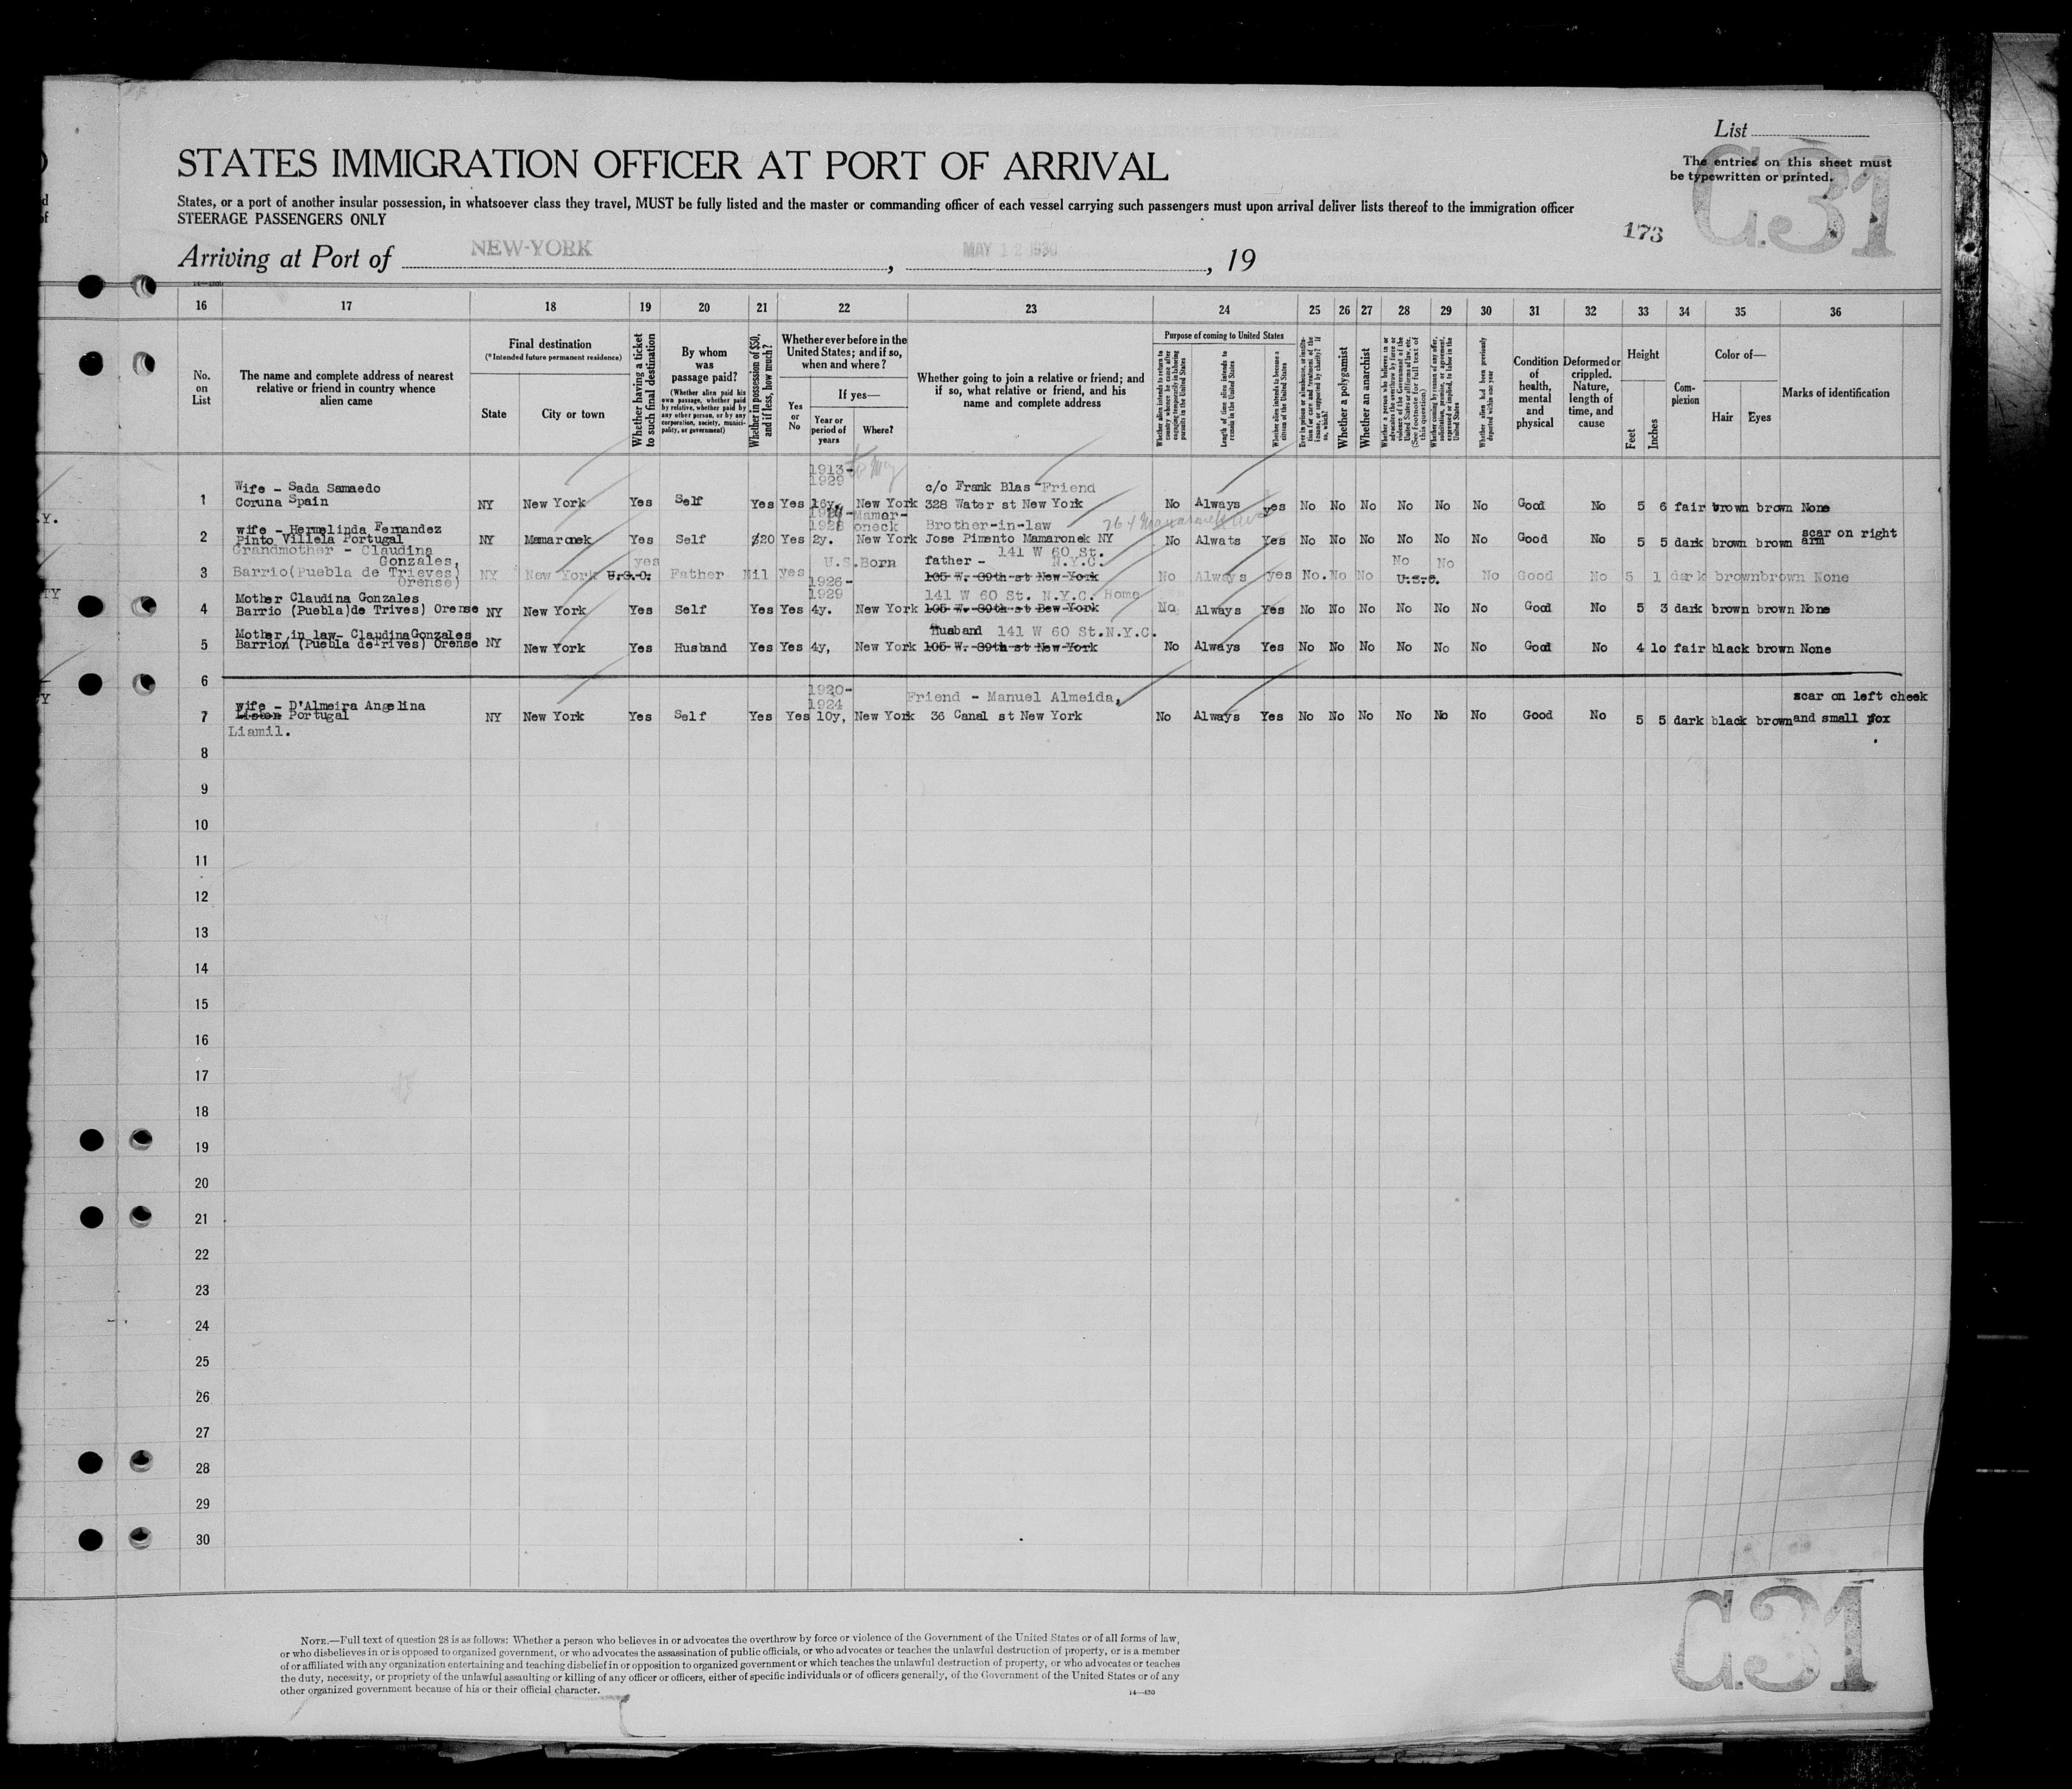 List
The entries on this sheet must
be typewritten or printed.
C.31
STATES IMMIGRATION OFFICER AT PORT OF ARRIVAL
States, or a port of another insular possession, in whatsoever class they travel, MUST be fully listed and the master or commanding officer of each vessel carrying such passengers must upon arrival deliver lists thereof to the immigration officer
STEERAGE PASSENGERS ONLY
173
Arriving at Port of NEW-YORK, MAY 12 1930, 19
16 17 18 19 20 21 22 23 24 25 26 27 28 29 30 31 32 33 34 35 36
No. on List
The name and complete address of nearest relative or friend in country whence alien came
Final destination
(*Intended future permanent residence)
State
City or town
Whether having a ticket to such final destination
By whom was passage paid?
(Whether alien paid his own passage, whether paid by relative, whether paid by any other person, or by any corporation, society, municipality, or government)
Whether in possession of $50, and if less, how much?
Whether ever before in the United States; and if so, when and where?
Yes or No
If yes—
Year or period of years
Where?
Whether going to join a relative or friend; and if so, what relative or friend, and his name and complete address
Purpose of coming to United States
Whether alien intends to return to country whence he came after engaging temporarily in laboring pursuits in the United States
Length of time alien intends to remain in the United States
Whether alien intends to become a citizen of the United States
Ever in prison or almshouse, or institution for care and treatment of the insane, or supported by charity? If so, which?
Whether a polygamist
Whether an anarchist
Whether a person who believes in or advocates the overthrow by force or violence of the Government of the United States or all forms of law, etc. (See footnote for full text of this question)
Whether coming by reason of any offer, solicitation, promise, or agreement, expressed or implied, to labor in the United States
Whether alien had been previously deported within one year
Condition of health, mental and physical
Deformed or crippled. Nature, length of time, and cause
Height
Feet
Inches
Complexion
Color of—
Hair
Eyes
Marks of identification
1913-
1929
Wife - Sada Samaedo c/o Frank Blas -Friend
1 Coruna Spain NY New York Yes Self Yes Yes 16y. New York 328 Water st New York No Always yes No No No No No No Good No 5 6 fair brown brown None
1928 Mamaroneck
wife - Hermelinda Fernandez Brother-in-law scar on right
2 Pinto Villela Portugal NY Mamaronek Yes Self $20 Yes 2y. New York Jose Pimento Mamaronek NY No Alwats Yes No No No No No No Good No 5 5 dark brown brown arm
Grandmother - Claudina 141 W 60 St.
Gonzales, yes U.S.Born father - N.Y.C. No No
3 Barrio(Puebla de Trieves) NY New York U.S.C. Father Nil yes 105 W. 89th st New York No Always yes No. No No U.S.C. No Good No 5 1 dark brown brown None
Orense) 1926-
1929
Mother Claudina Gonzales 141 W 60 St. N.Y.C. Home
4 Barrio (Puebla)de Trives) Orense NY New York Yes Self Yes Yes 4y. New York 105 W. 89th st Bew York No Always Yes No No No No No No Good No 5 3 dark brown brown None
Mother in law- ClaudinaGonzales Husband 141 W 60 St.N.Y.C.
5 Barrion (Puebla deTrives) Orense NY New York Yes Husband Yes Yes 4y, New York 105 W. 89th st New York No Always Yes No No No No No No Good No 4 10 fair black brown None
6
1920-
1924
wife - D'Almeira Angelina Friend - Manuel Almeida, scar on left cheek
7 Liston Portugal NY New York Yes Self Yes Yes 10y, New York 36 Canal st New York No Always Yes No No No No No No Good No 5 5 dark black brown and small pox
Liamil.
8
9
10
11
12
13
14
15
16
17
18
19
20
21
22
23
24
25
26
27
28
29
30
NOTE.—Full text of question 28 is as follows: Whether a person who believes in or advocates the overthrow by force or violence of the Government of the United States or of all forms of law,
or who disbelieves in or is opposed to organized government, or who advocates the assassination of public officials, or who advocates or teaches the unlawful destruction of property, or is a member
of or affiliated with any organization entertaining and teaching disbelief in or opposition to organized government or which teaches the unlawful destruction of property, or who advocates or teaches
the duty, necessity, or propriety of the unlawful assaulting or killing of any officer or officers, either of specific individuals or of officers generally, of the Government of the United States or of any
other organized government because of his or their official character.
14—430
C.31